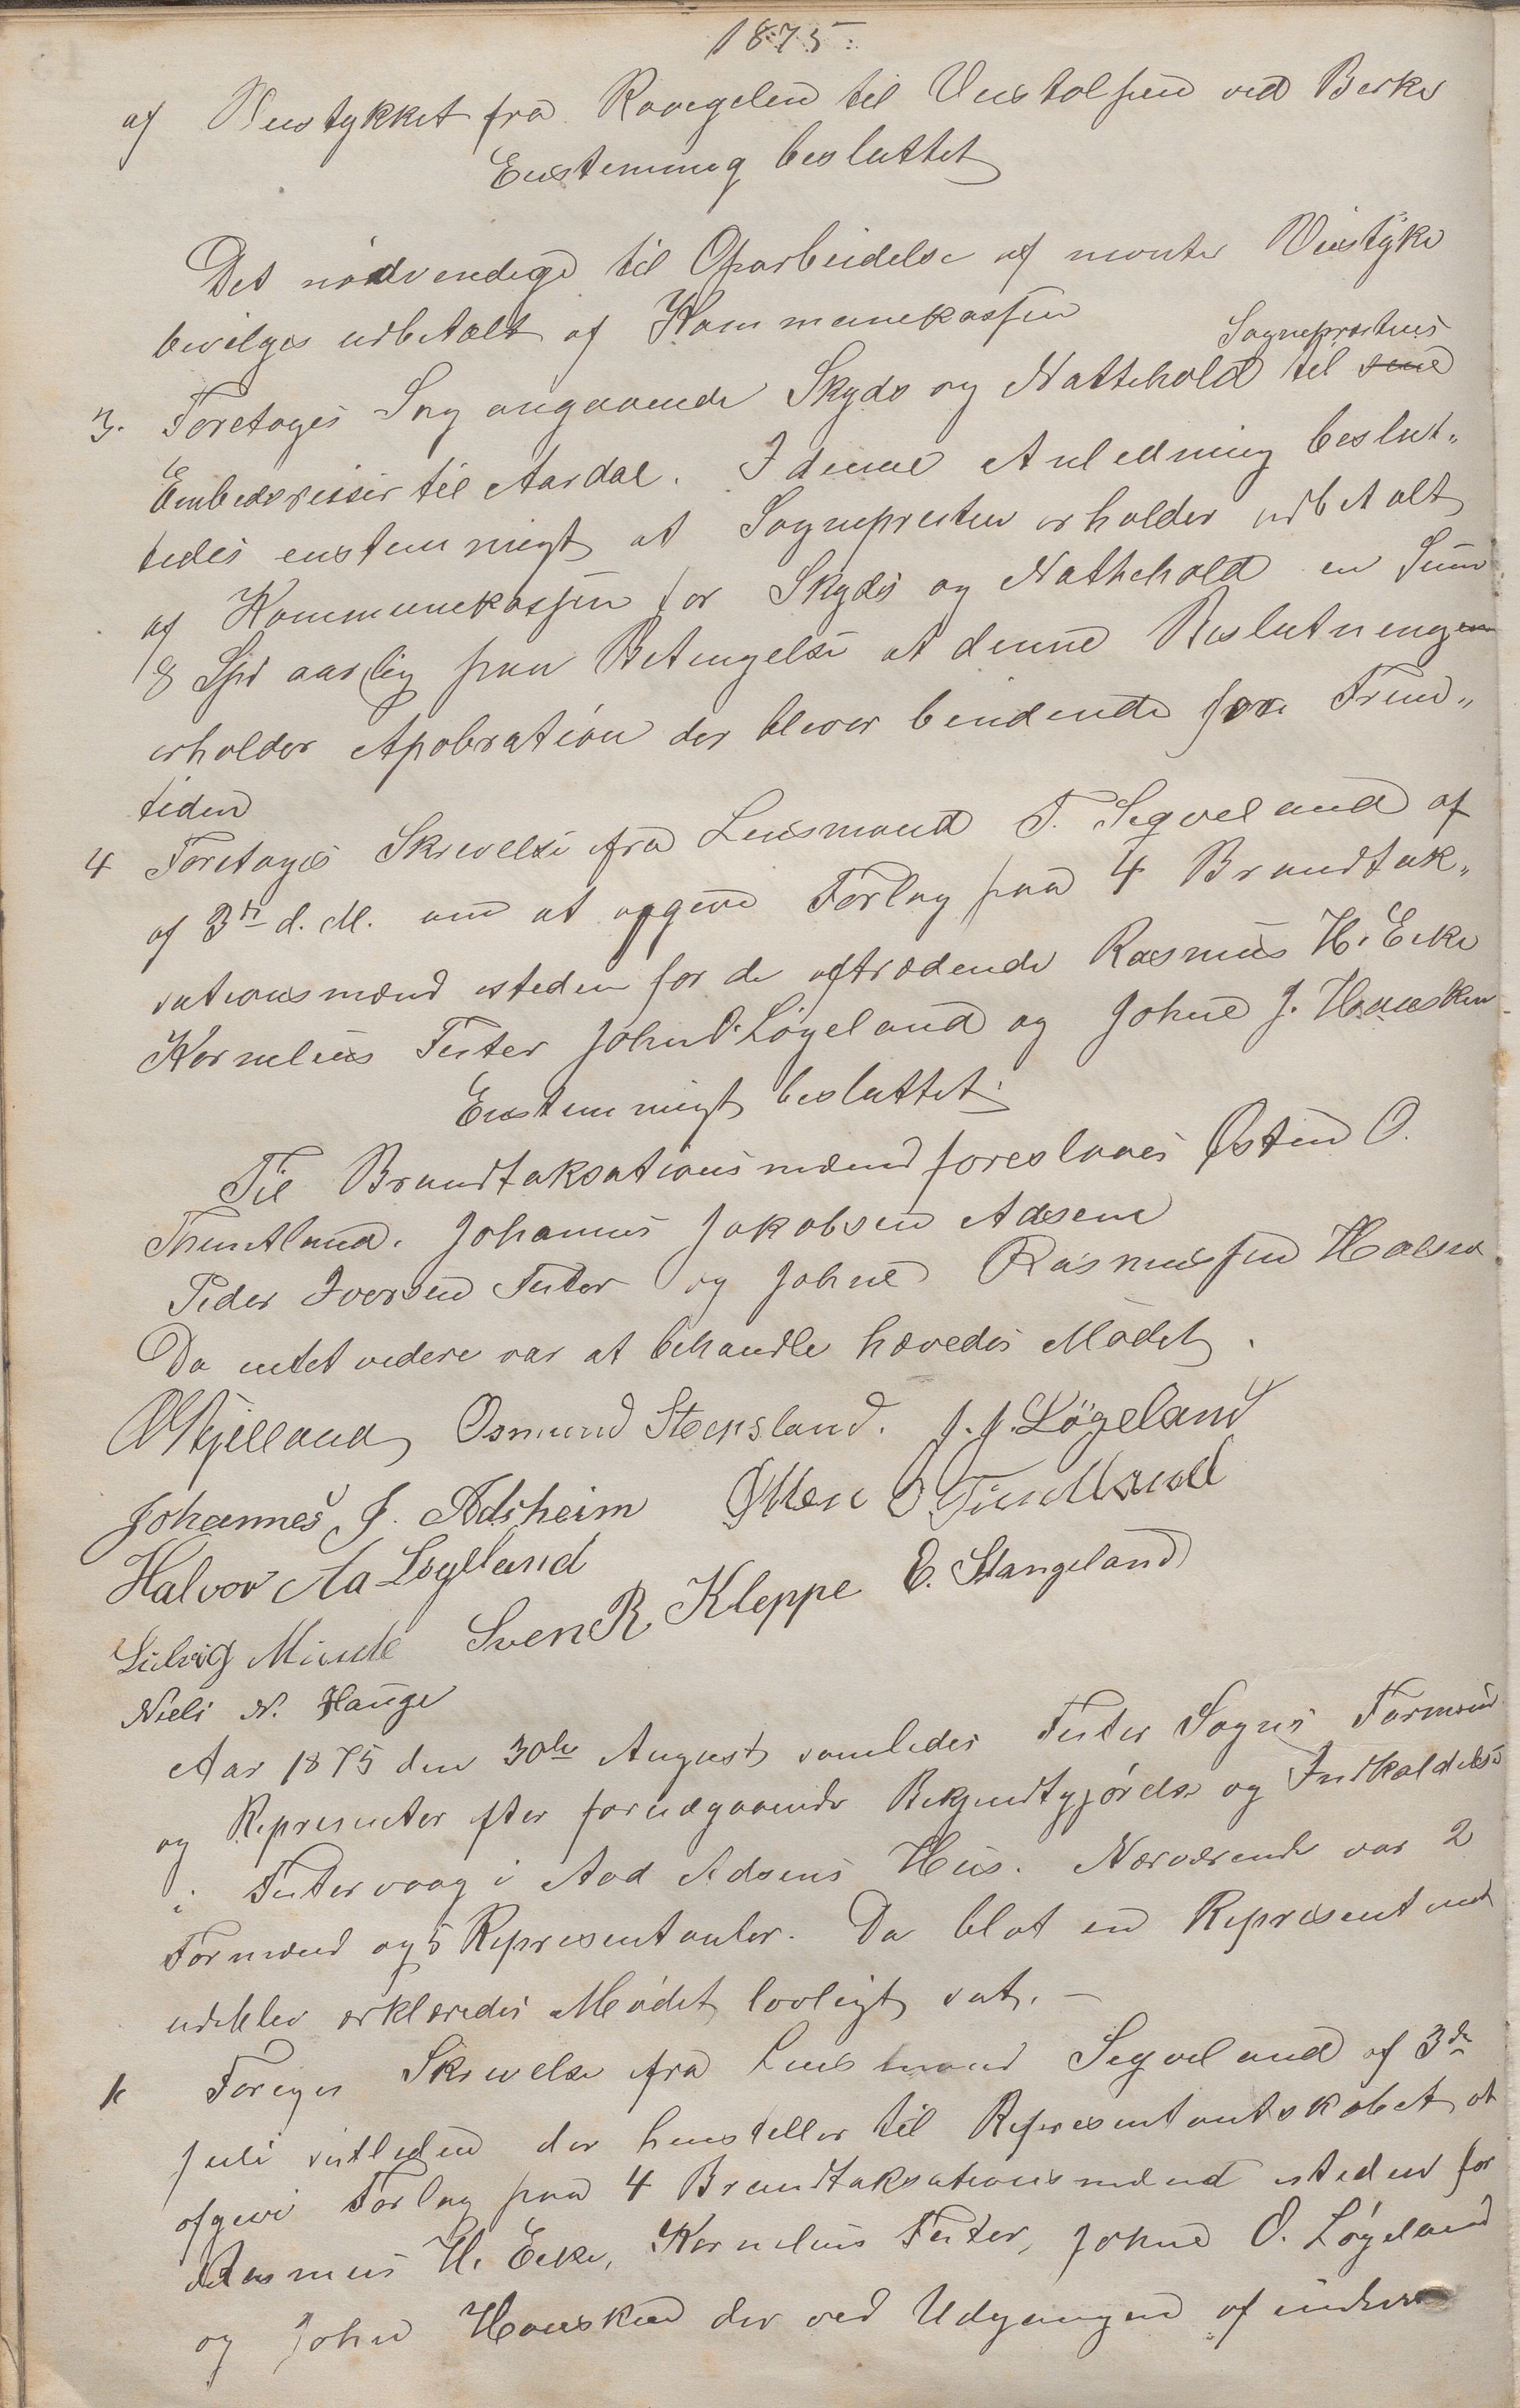 1875.
af Veistykket fra Ravnelen til Veistolpen ved Berke
Enstemmig besluttet
Det nødvendige til Oparbeidelse af mønte Veistyke
bevilges udbetalt af Kommunekassen
Sogneprestens
3. Foretoges Sag angaaende Skyds og Nattehold til sine
Embedsreiser til Aardal. I denne Anledning beslut„
tedes enstemmigt at Sognepresten erholder udbetalt
af Kommunekassen for Skyds og Nattehold en Sum
8 Spd aarlig paa Betingelse at denne Beslutning
erholder Apobration der blever bindende fore Frem„
tiden
4 Foretoges Skrivelse fra Lensmand T. Segveland af
af 3die d. M. om at opgive Forlag paa 4 Brandtak„
sationsmænd isteden for de aftrædende Rasmus H. Eike
Kornelius Fister John O. Løgeland og Johne J. Hausken
Enstemmigt besluttet:
Til Brandtaksationsmænd foreslaaes Østen O.
Thuntland. Johannes Jakobsen Adsene
Peder Iversen Fister og Johne Rasmussen Halsne
Da intet videre var at behandle hævedes Mødet.
O Kjelland Osmund Steensland. J. J. Løgeland
Johannes J. Adsheim Østen O Tuntland
Halvor Aa Løgeland
Ludvig Minde Sven R Kleppe E. Stangeland
Niels N. Hauge
Aar 1875 den 30te August samledes Fister Sogns Formænd
og Represinter efter forudgaaende Bekjendtgjørelse og Indkaldelse
i Fistervaag i Aad Adsens Hus. Nærværende var 2
Formænd og 5 Representanter. Da blot en Represent
udeblev erklæredes Mødet lovligt sat. –
1 Foreges Skrivelse fra Lensmand Segveland af 3de
Juli sidtleden der henstiller til Representantskabet at
afgive Forlag paa 4 Brandtaksationsmænd isteden for
Rasmus H. Eike, Kornelius Fister, Johne O. Løgeland
og John Hausken der ved Udgangen af